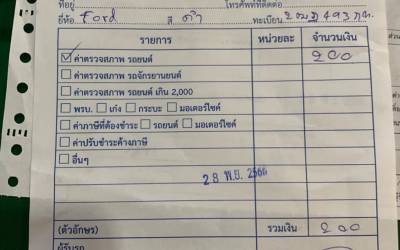 ที่อยู่ โทรศัพท์ที่ติดต่อ
ยี่ห้อ Ford สี ดำ ทะเบียน 493 กท.
รายการ หน่วยละ จำนวนเงิน
ค่าตรวจสภาพ รถยนต์ ๒๐๐
ค่าตรวจสภาพ รถจักรยานยนต์
ค่าตรวจสภาพ รถยนต์ เกิน 2,000
พรบ. เก๋ง กระบะ มอเตอร์ไซค์
ค่าภาษีที่ต้องชำระ รถยนต์ มอเตอร์ไซค์
ค่าปรับชำระล้างภาษี
อื่นๆ
28 พ.ย. 2566
(ตัวอักษร) รวมเงิน ๒๐๐
ผู้รับรถ